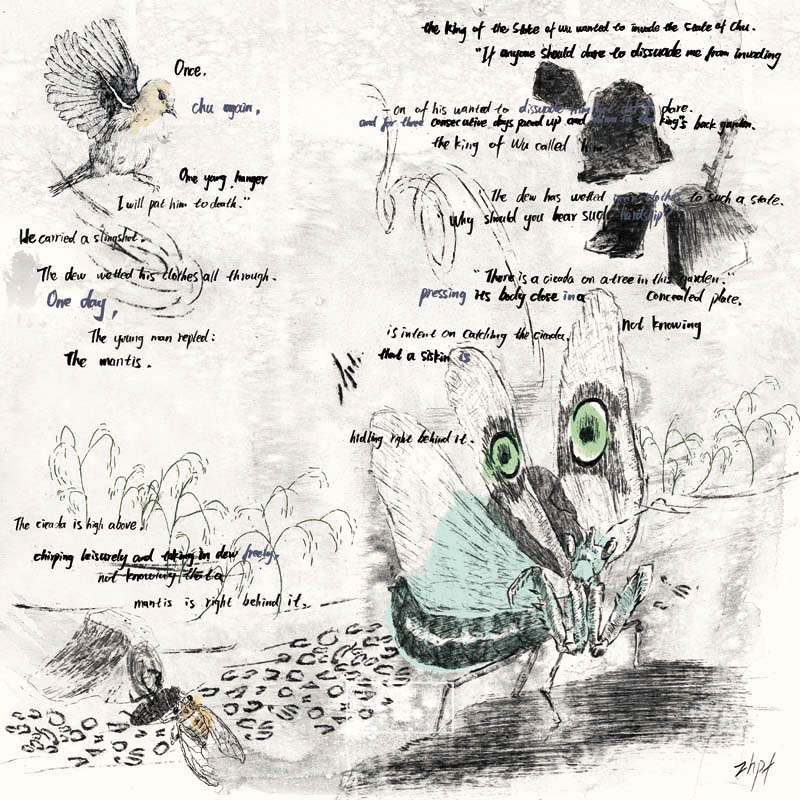 the king of the state of wu wanted to invade the state of Chu.
"If anyone should dare to dissuade me from invading
Once.
chu again,
on of his wanted to dissuade him dare.
and for three consecutive days paced up and king's back garden.
the king of Wu called him
One young hanger
I will put him to death."
"The dew has wetted clothes to such a state.
"Why should you bear such hardship
He carried a slingshot.
The dew wetted his clothes all through.
"There is a cicada on a tree in this garden."
One day,
pressing its body close in a concealed place.
The young man repled:
is intent on catching the cicada.
not knowing
The mantis.
that a siskin is
hidling right behind it.
The cicada is high above.
chirping leisurely and taking in dew freely,
not knowing that a
mantis is right behind it.
zhpt